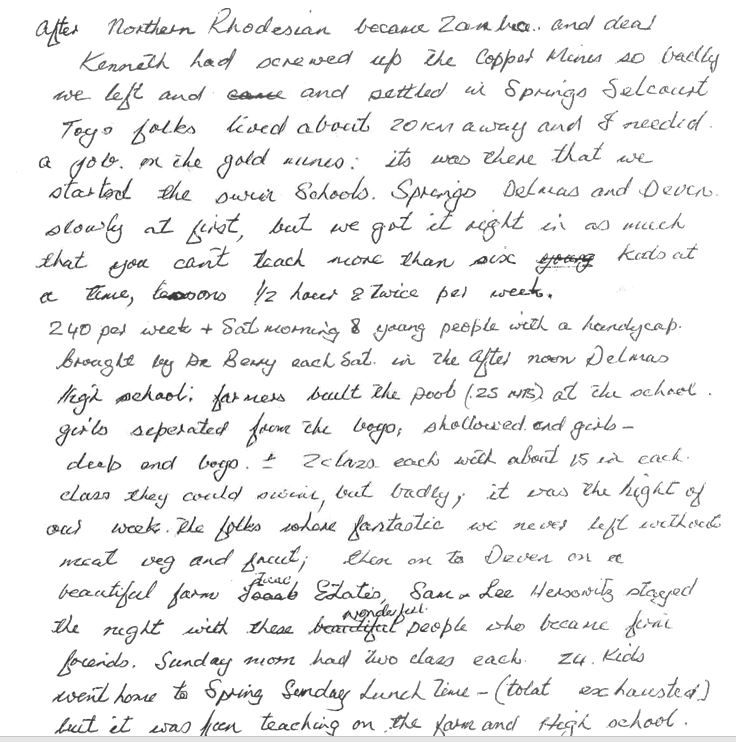 After Northern Rhodesian became Zambia.. and dear
Kenneth had screwed up the Copper Mines so badly
we left and came and settled in Springs Selcourt
Toyo folks lived about 20 km away and I needed.
a job. on the gold mines: its was there that we
started the swim Schools. Springs Delmas and Deven.
slowly at first, but we got it right in as much
that you can't teach more than six young kids at
a time, lessons 1/2 hour & twice per week.
240 per week + Sat morning 8 young people with a handycap.
brought by Dr Berry each Sat. in the after noon Delmas
High school: farmers built the pool (.25 mts) at the school.
girls seperated from the boys; shallowed end girls -
deep end boys. ± 2 class each with about 15 in each.
class they could swim, but badly; it was the hight of
our week. The folks where fantastic we never left without
meat veg and fruit; then on to Deven on a
beautiful farm Estates, Sam & Lee Hersowitz stayed
the night with these beautiful wonderfull. people who became firm
friends. Sunday morn had two class each. 24. Kids
went home to Spring Sunday Lunch Time - (totat exhausted)
but it was fun teaching on the farm and High school.